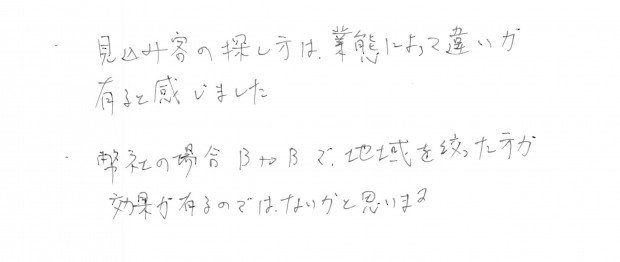 ・ 見込み客の探し方は、業態によって違いが
有ると感じました
・ 弊社の場合BtoBで、地域を絞った方が
効果が有るのでは、ないかと思います